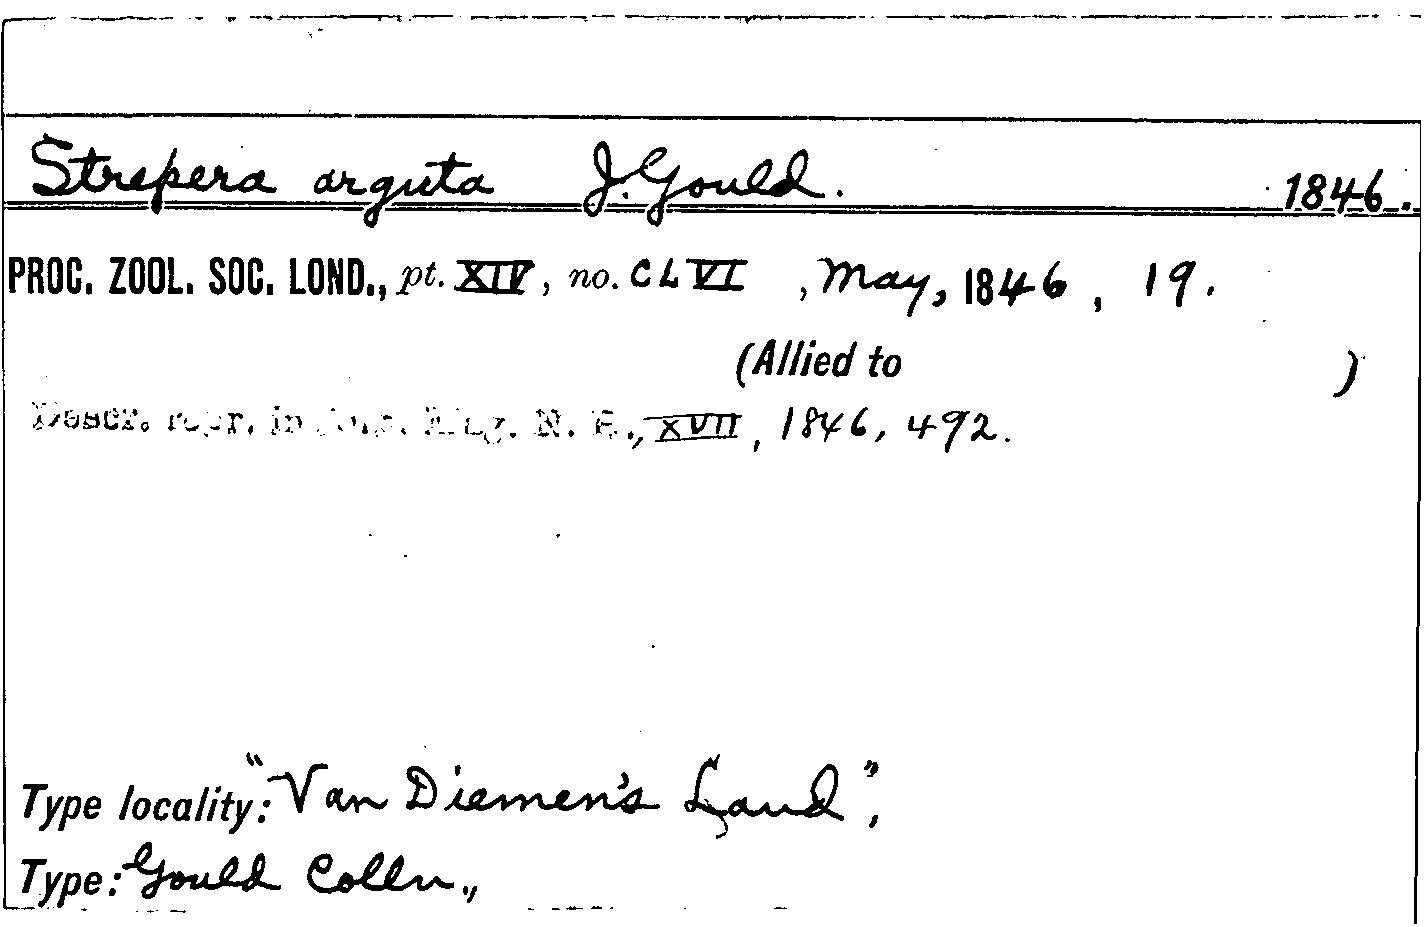 Strepera arguta J. Gould. 1846.
PROC. ZOOL. SOC. LOND., pt. XIV, no. CLVI, May, 1846, 19.
(Allied to )
Descr. repr. in Mag. N. H., XVII, 1846, 492.
Type locality: "Van Diemen's Land",
Type: Gould Colln.,